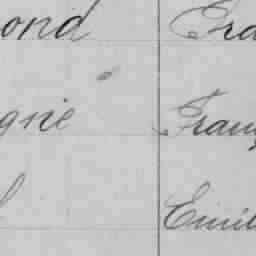 ond Era
gné Franç
l Emil